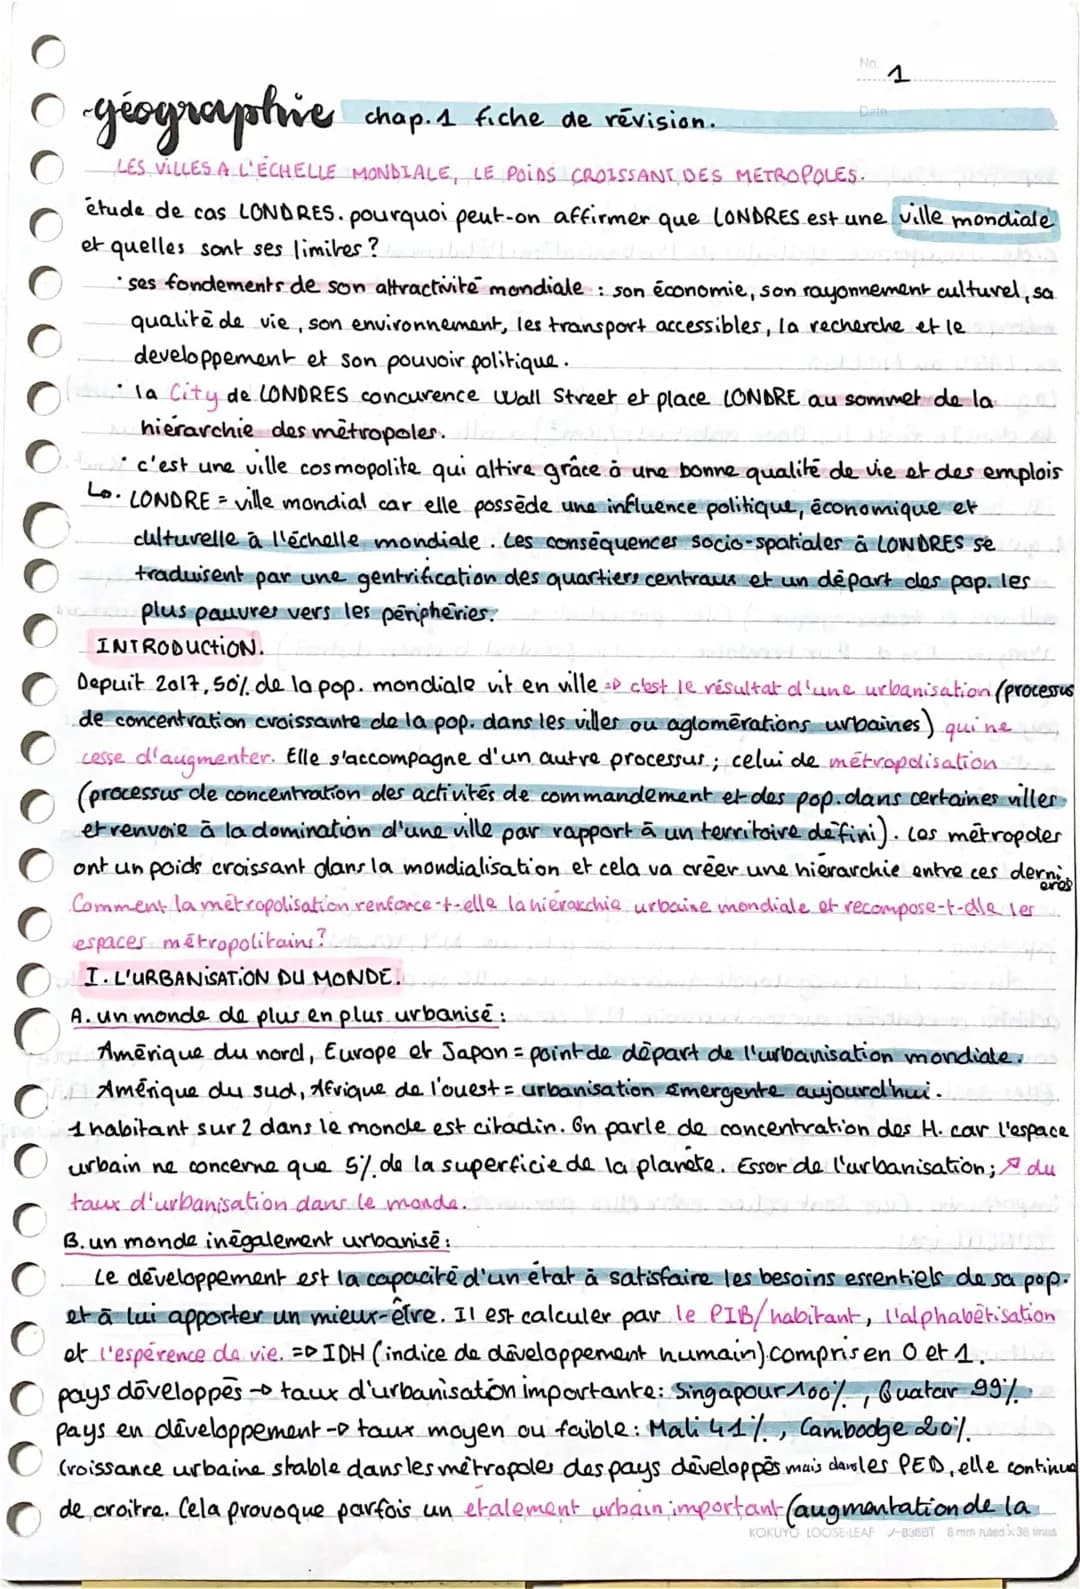 No. 1
géographie chap.1 fiche de révision.
Date
LES VILLES A L'ÉCHELLE MONDIALE, LE POIDS CROISSANT DES METROPOLES.
étude de cas LONDRES. pourquoi peut-on affirmer que LONDRES est une ville mondiale
et quelles sont ses limites ?
· ses fondements de son attractivité mondiale : son économie, son rayonnement culturel, sa
qualité de vie, son environnement, les transport accessibles, la recherche et le
developpement et son pouvoir politique.
· la City de LONDRES concurence Wall Street et place LONDRE au sommet de la
hiérarchie des métropoles.
· c'est une ville cosmopolite qui attire grâce à une bonne qualité de vie et des emplois
LONDRE = ville mondial car elle possède une influence politique, économique et
culturelle à l'échelle mondiale. Les conséquences socio-spatiales à LONDRES se
traduisent par une gentrification des quartiers centraux et un départ des pop. les
plus pauvres vers les périphéries.
INTRODUCTION.
Depuit 2017, 50% de la pop. mondiale vit en ville => c'est le résultat d'une urbanisation (processus
de concentration croissante de la pop. dans les villes ou aglomérations urbaines) qui ne
cesse d'augmenter. Elle s'accompagne d'un autre processus ; celui de métropolisation
(processus de concentration des activités de commandement et des pop. dans certaines villes
et renvoie à la domination d'une ville par rapport à un territoire défini). Les métropoles
ont un poids croissant dans la mondialisation et cela va créer une hiérarchie entre ces dernières
Comment la métropolisation renforce-t-elle la hiérarchie urbaine mondiale et recompose-t-elle les
espaces métropolitains?
I. L'URBANISATION DU MONDE.
A. un monde de plus en plus urbanisé :
Amérique du nord, Europe et Japon = point de départ de l'urbanisation mondiale.
Amérique du sud, Afrique de l'ouest = urbanisation émergente aujourd'hui.
1 habitant sur 2 dans le monde est citadin. On parle de concentration des H. car l'espace
urbain ne concerne que 5% de la superficie de la planète. Essor de l'urbanisation; ↗ du
taux d'urbanisation dans le monde.
B. un monde inégalement urbanisé :
Le développement est la capacité d'un état à satisfaire les besoins essentiels de sa pop.
et à lui apporter un mieux-être. Il est calculer par le PIB/habitant, l'alphabétisation
et l'espérence de vie. => IDH (indice de développement humain) compris en 0 et 1.
pays développés -> taux d'urbanisation importante : Singapour 100%, Quatar 99%.
pays en développement -> taux moyen ou faible : Mali 41%, Cambodge 20%.
Croissance urbaine stable dans les métropoles des pays développés mais dans les PED, elle continue
de croitre. Cela provoque parfois un étalement urbain important (augmentation de la
KOKUYO LOOSE-LEAF ノ-836BT 8 mm ruled X 36 lines